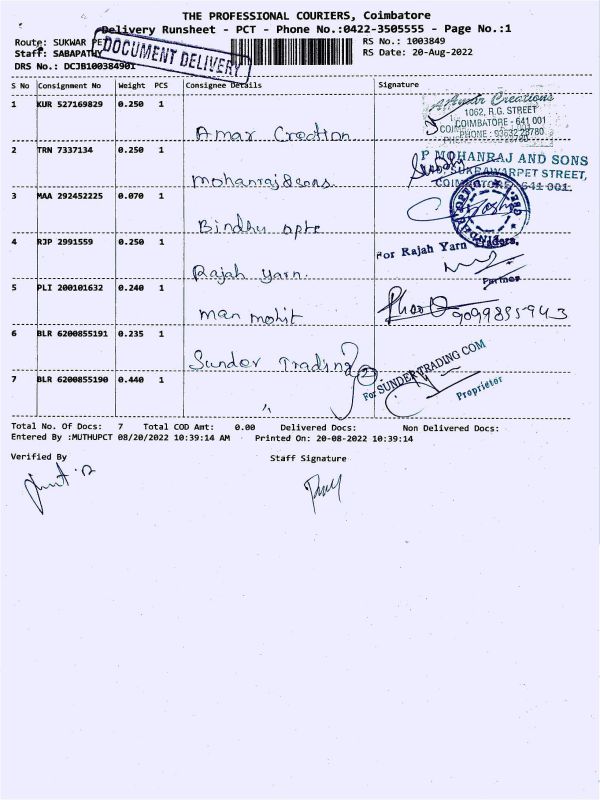 THE PROFESSIONAL COURIERS, Coimbatore
Delivery Runsheet - PCT - Phone No.:0422-3505555 - Page No.:1
Route: SUKWAR PE
RS No.: 1003849
Staff: SABAPATHY
RS Date: 20-Aug-2022
DRS No.: DCJB100384901
DOCUMENT DELIVERY
S No Consignment No Weight PCS Consignee Details Signature
1 KUR 527169829 0.250 1 Amar Creation
Creations
1062, R.G. STREET
COIMBATORE - 641 001
PHONE : 93632 28780
2 TRN 7337134 0.250 1 Mohanraj & sons
P MOHANRAJ AND SONS
SUKRAWARPET STREET,
COIMBATORE 641 001.
3 MAA 292452225 0.070 1 Bindhu opte
4 RJP 2991559 0.250 1 Rajah yarn.
For Rajah Yarn Traders,
Partner
5 PLI 200101632 0.240 1 man mohit
9099895943
6 BLR 6200855191 0.235 1 Sunder Trading
2
For SUNDER TRADING COM
Proprietor
7 BLR 6200855190 0.440 1 "
Total No. Of Docs: 7 Total COD Amt: 0.00 Delivered Docs: Non Delivered Docs:
Entered By :MUTHUPCT 08/20/2022 10:39:14 AM Printed On: 20-08-2022 10:39:14
Verified By Staff Signature